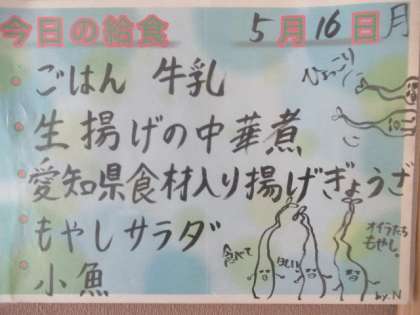 今日の給食 5月16日月
ごはん 牛乳
生揚げの中華煮
愛知県食材入り揚げぎょうざ
もやしサラダ
小魚
ひょっこり
オイラたち
もやし。
食べて
ほしい
by.N